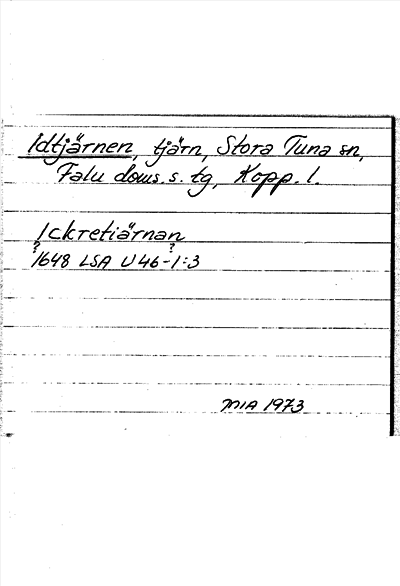 Idtjärnen, tjärn, Stora Tuna sn,
Falu doms. s. tg, Kopp. l.
Ickretiärnan
? ?
1648 LSA U46-1:3
MIA 1973